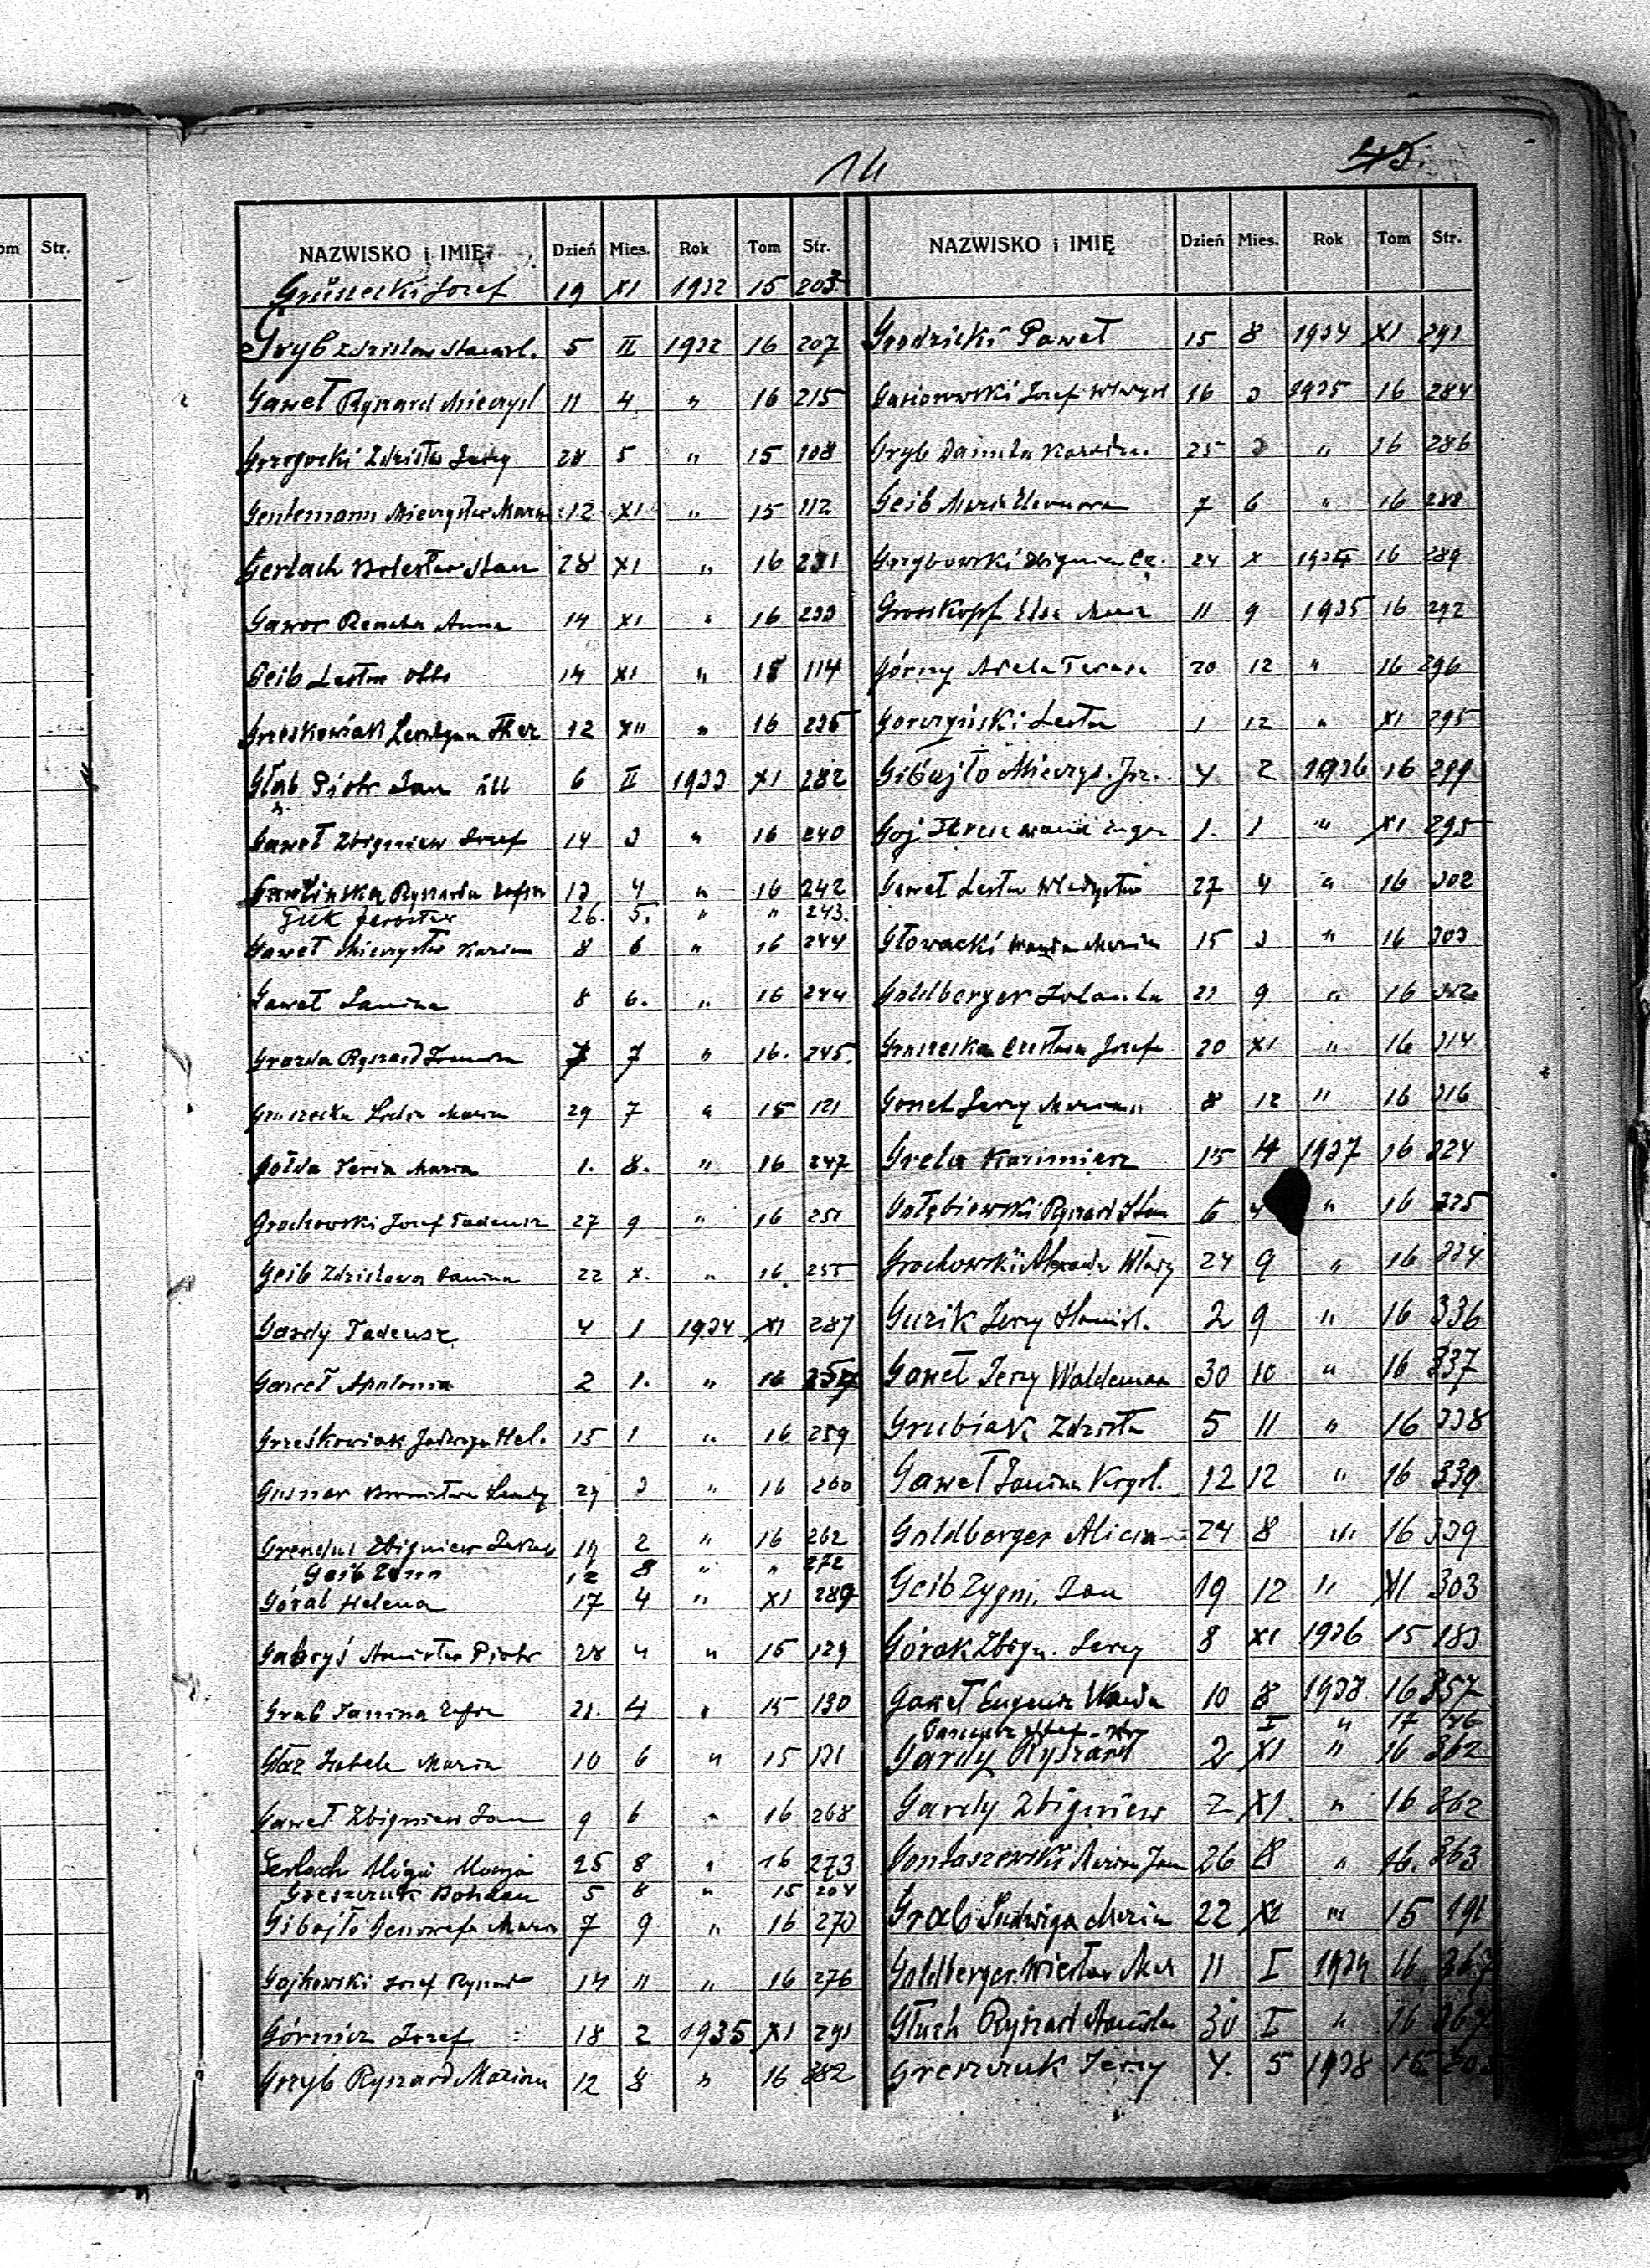 om Str.
14 45.
NAZWISKO i IMIĘ Dzień Mies. Rok Tom Str.
Gruszecki Jozef 19 XI 1932 15 203
Gryb Zdzisław Stanisł. 5 II 1932 16 207
Gaweł Ryszard Mieczysł 11 4 " 16 215
Zdzisław Jerzy 28 5 " 15 108
Gentemann Mieczysław Marian 12 XI " 15 112
Gerlach Bolesław Stan 28 XI " 16 231
Gawor Renata Anna 14 XI " 16 233
Geib Lesław Otto 14 XI " 15 114
Grześkowiak 12 XII " 16 235
Głąb Piotr Jan 6 II 1933 XI 282
Gaweł Zbigniew Jozef 14 3 " 16 240
Ryszarda Zofia 13 4 " 16 242
Guk Jarosław 26. 5. " " 243.
Gaweł Mieczysław Kazim 8 6 " 16 244
Gaweł Janina 8 6. " 16 244
Ryszard 7 7 " 16. 245.
Gruszecka Lidia Maria 29 7 " 15 121
Gołda Maria 1. 8. " 16 247
Grochowski Jozef Tadeusz 27 9 " 16 251
Geib Zdzisława Janina 22 X. " 16. 255
Gardy Tadeusz 4 1 1934 XI 287
Gaweł Apolonia 2 1. " 16 257
Grześkowiak Jadwiga Hel. 15 1 " 16. 259
Bronisława 29 3 " 16 260
Zbigniew 19 2 " 16 262
Geib 12 8 " " 272
Góral Helena 17 4 " XI 289
Gabryś Stanisław Piotr 28 4 " 15 129
Grab Janina Zofia 21. 4 " 15 130
Głaz Izabela Maria 10 6 " 15 131
Gaweł Zbigniew Jan 9 6 " 16 268
Gerlach Maria 25 8 " 16 273
Greszczuk Bohdan 5 8 " 15 204
Gibajło Genowefa Maria 7 9 " 16 270
Gajkowski Jozef Ryszard 14 11 " 16 276
Górnicz Jozef 18 2 1935 XI 291
Grzyb Ryszard Marian 12 8 " 16 282
NAZWISKO i IMIĘ Dzień Mies. Rok Tom Str.
Grodzicki Paweł 15 8 1934 XI 291
Gąsiorowski Jozef Władysł 16 3 1935 16 284
Gryb Danuta 25 3 " 16 286
Geib Maria Eleonora 7 6 " 16 288
Grzybowski Zbigniew Cz. 24 X 1934 16 289
Grosskopf Elza Maria 11 9 1935 16 292
Górny Adela Teresa 20 12 " 16 296
Gorczyński Lesław 1 12 " XI 295
Gibajło Mieczys. Joz. 4 2 1936 16 299
Goj 1. 1 " XI 295
Gaweł Lesław Władysław 27 4 " 16 302
Głowacki Marian 15 3 " 16 303
Goldberger Jolanta 21 9 " 16 312
Gruszecka Józefa 20 XI " 16 314
Gonet Jerzy Marian 8 12 " 16 316
Grela Kazimierz 15 4 1937 16 324
Gołębiowski Ryszard Stan 6 4 " 16 325
Grochowski Władysł 24 9 " 16 334
Guzik Jerzy Stanisł. 2 9 " 16 336
Gaweł Jerzy Waldemar 30 10 " 16 337
Grubiak Zdzisła 5 11 " 16 338
Gaweł Janina Krys. 12 12 " 16 339
Goldberger Alicia 24 8 " 16 339
Geib Zygm. Jan 19 12 " XI 303
Górak Zbign. Jerzy 8 XI 1936 15 183
Gaweł Eugenia Wanda 10 8 1938 16 357
I " 17 46
Gardy Ryszard 2 XI " 16 362
Gardy Zbigniew 2 XI " 16 362
Gontaszewski Marian Jan 26 8 " 16. 363
Grab Ludwiga Maria 22 XI " 15 191
Goldberger Wiesław Mar 11 I 1939 16 367
Głuch Ryszard Stanisław 30 I " 16 367
Greszczuk Jerzy 4. 5 1938 15